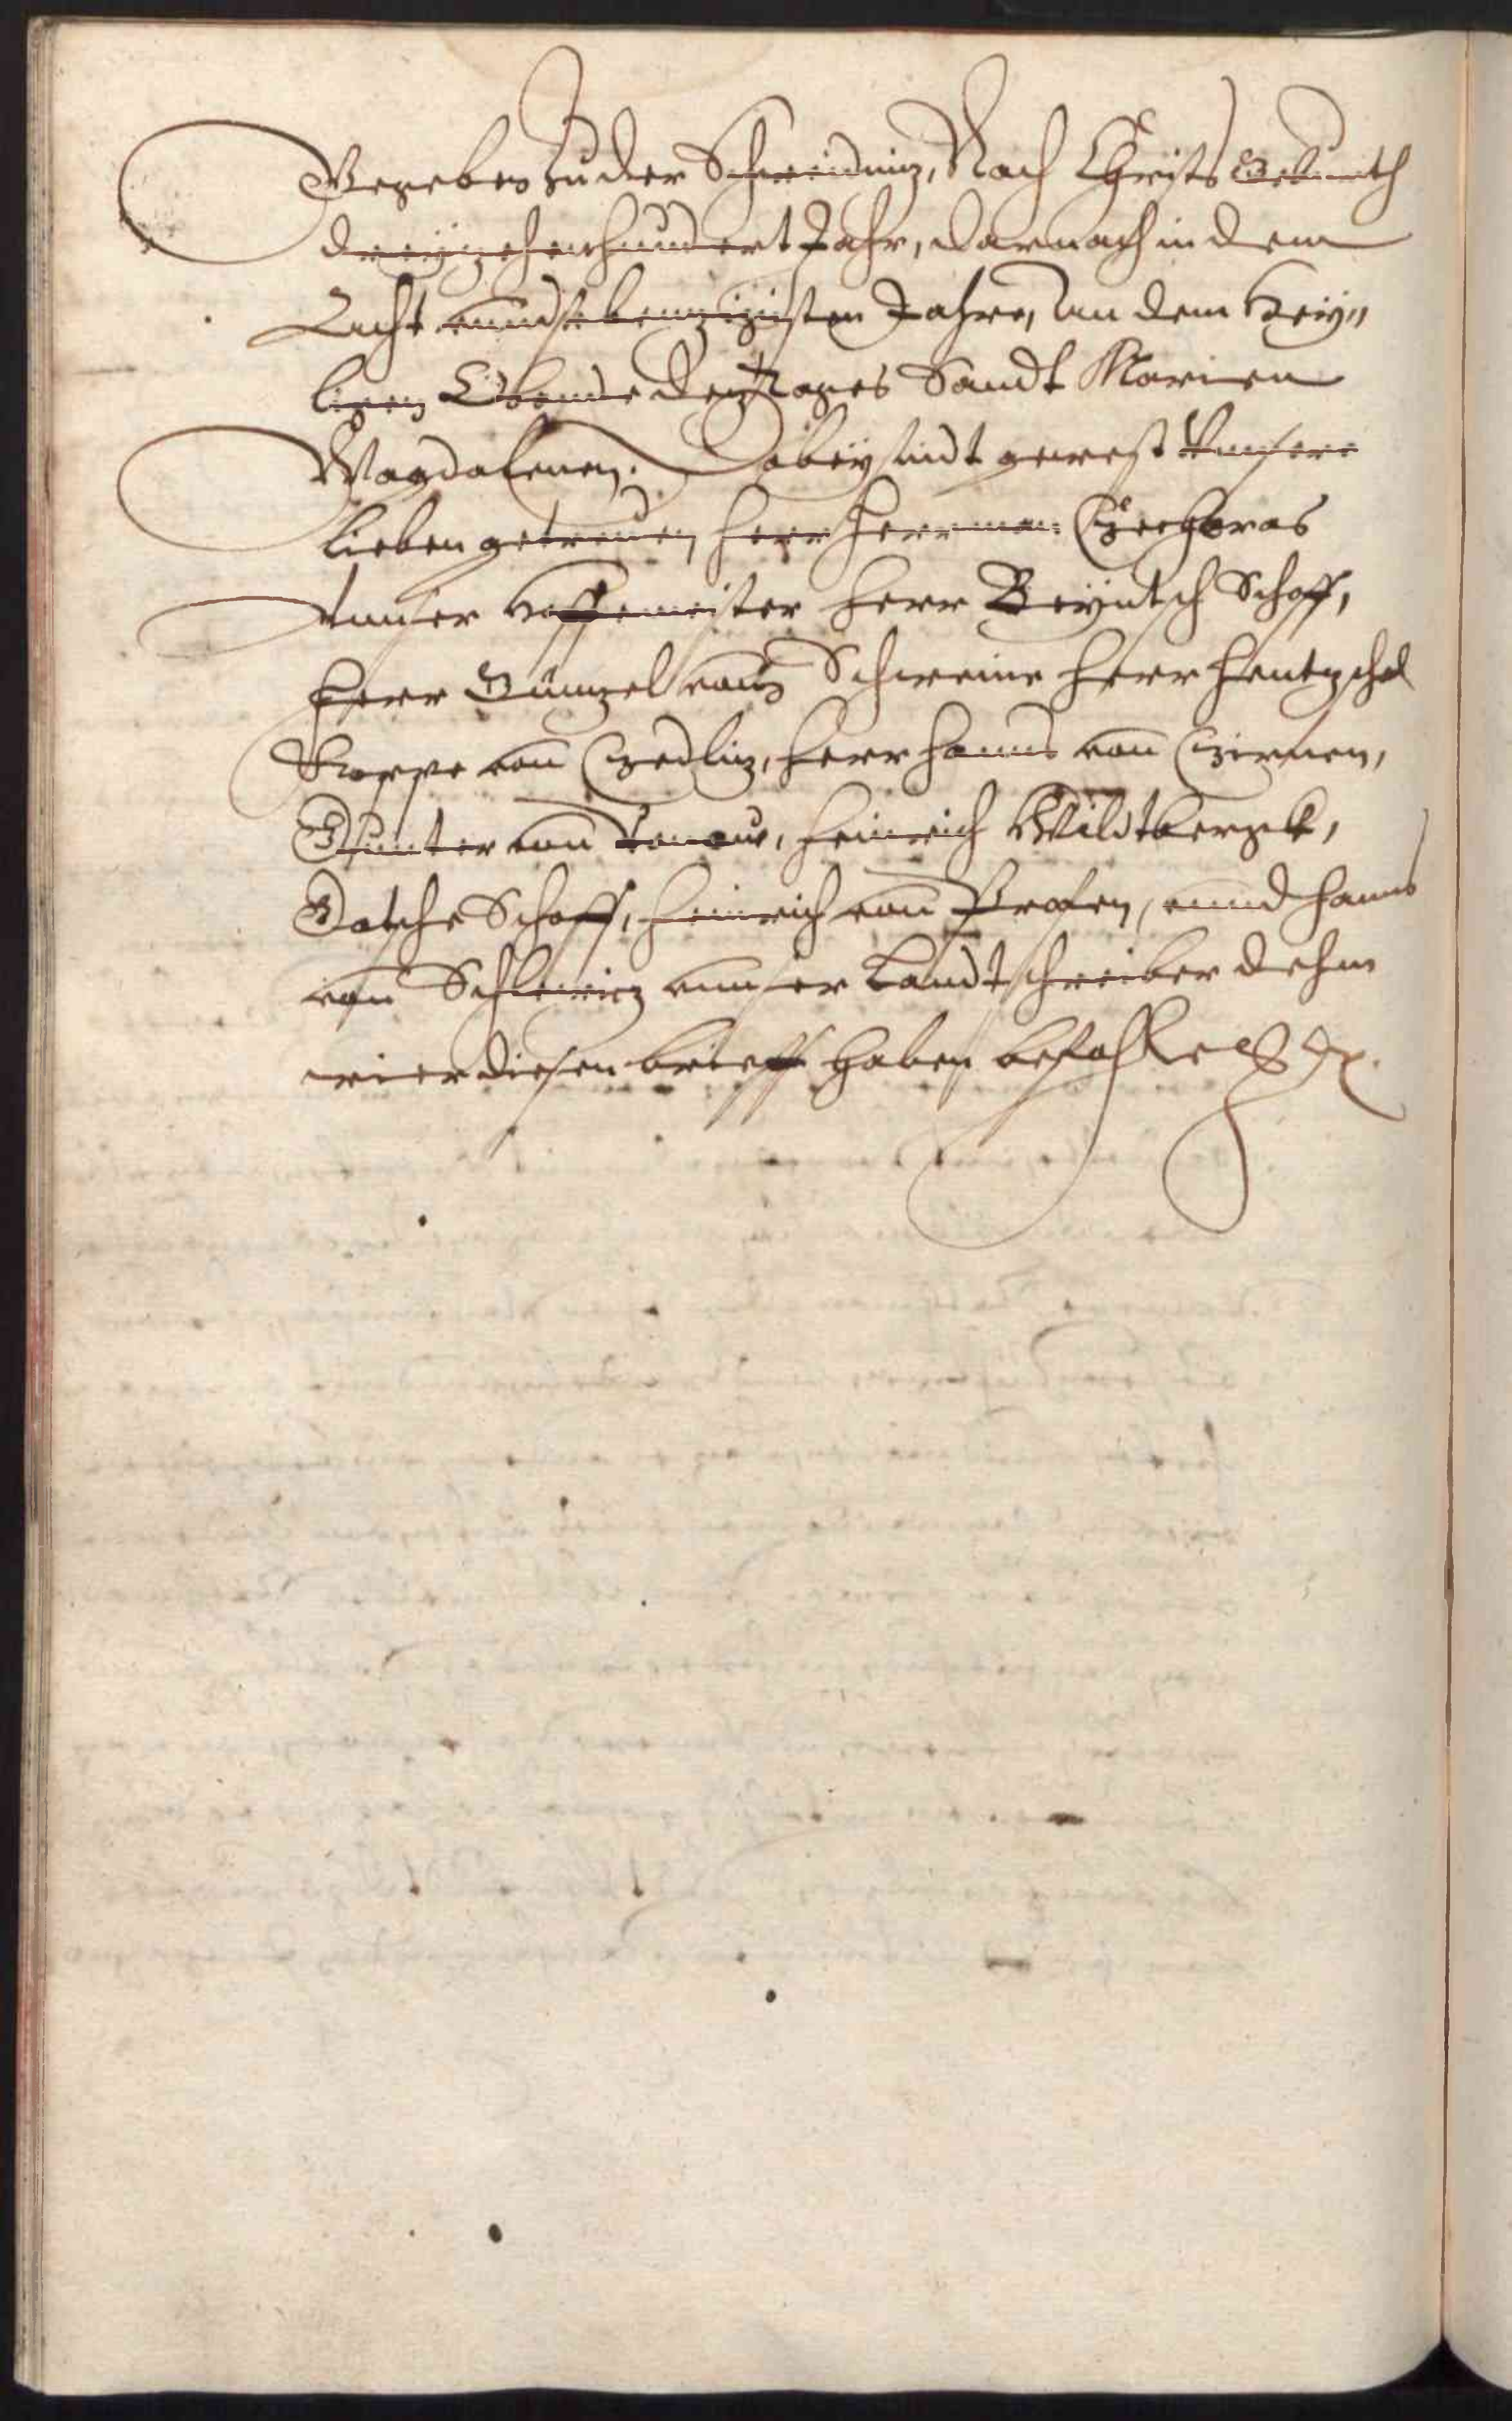 Gegeben zu der Schweidniz, Nach Christs Geburth
dreÿzehenhundert Jahr, darnach in dem
Acht unndsebennzigisten Jahre, an dem Heÿ„
ligen Obende deß Tages Sandt Marien
Magdalenen. Dobeÿ sindt gewest Unsere
lieben getreuen, Herr Herrman Czeczoras
Unnser Hoffemeister Herr Reÿntsch Schoff,
Herr Günzel vom Schweine Herr Hentzschel
Roppe von Czedliz, Herr Hanns von Czirnen,
Gunter von Ronow, Heinrich Wildtbergk,
Gotsche Schoff, Heinrich von Profen, unnd Hanns
von Schlewiz unnser Landtschreiber dehm
wier diesen brieff haben befohlen